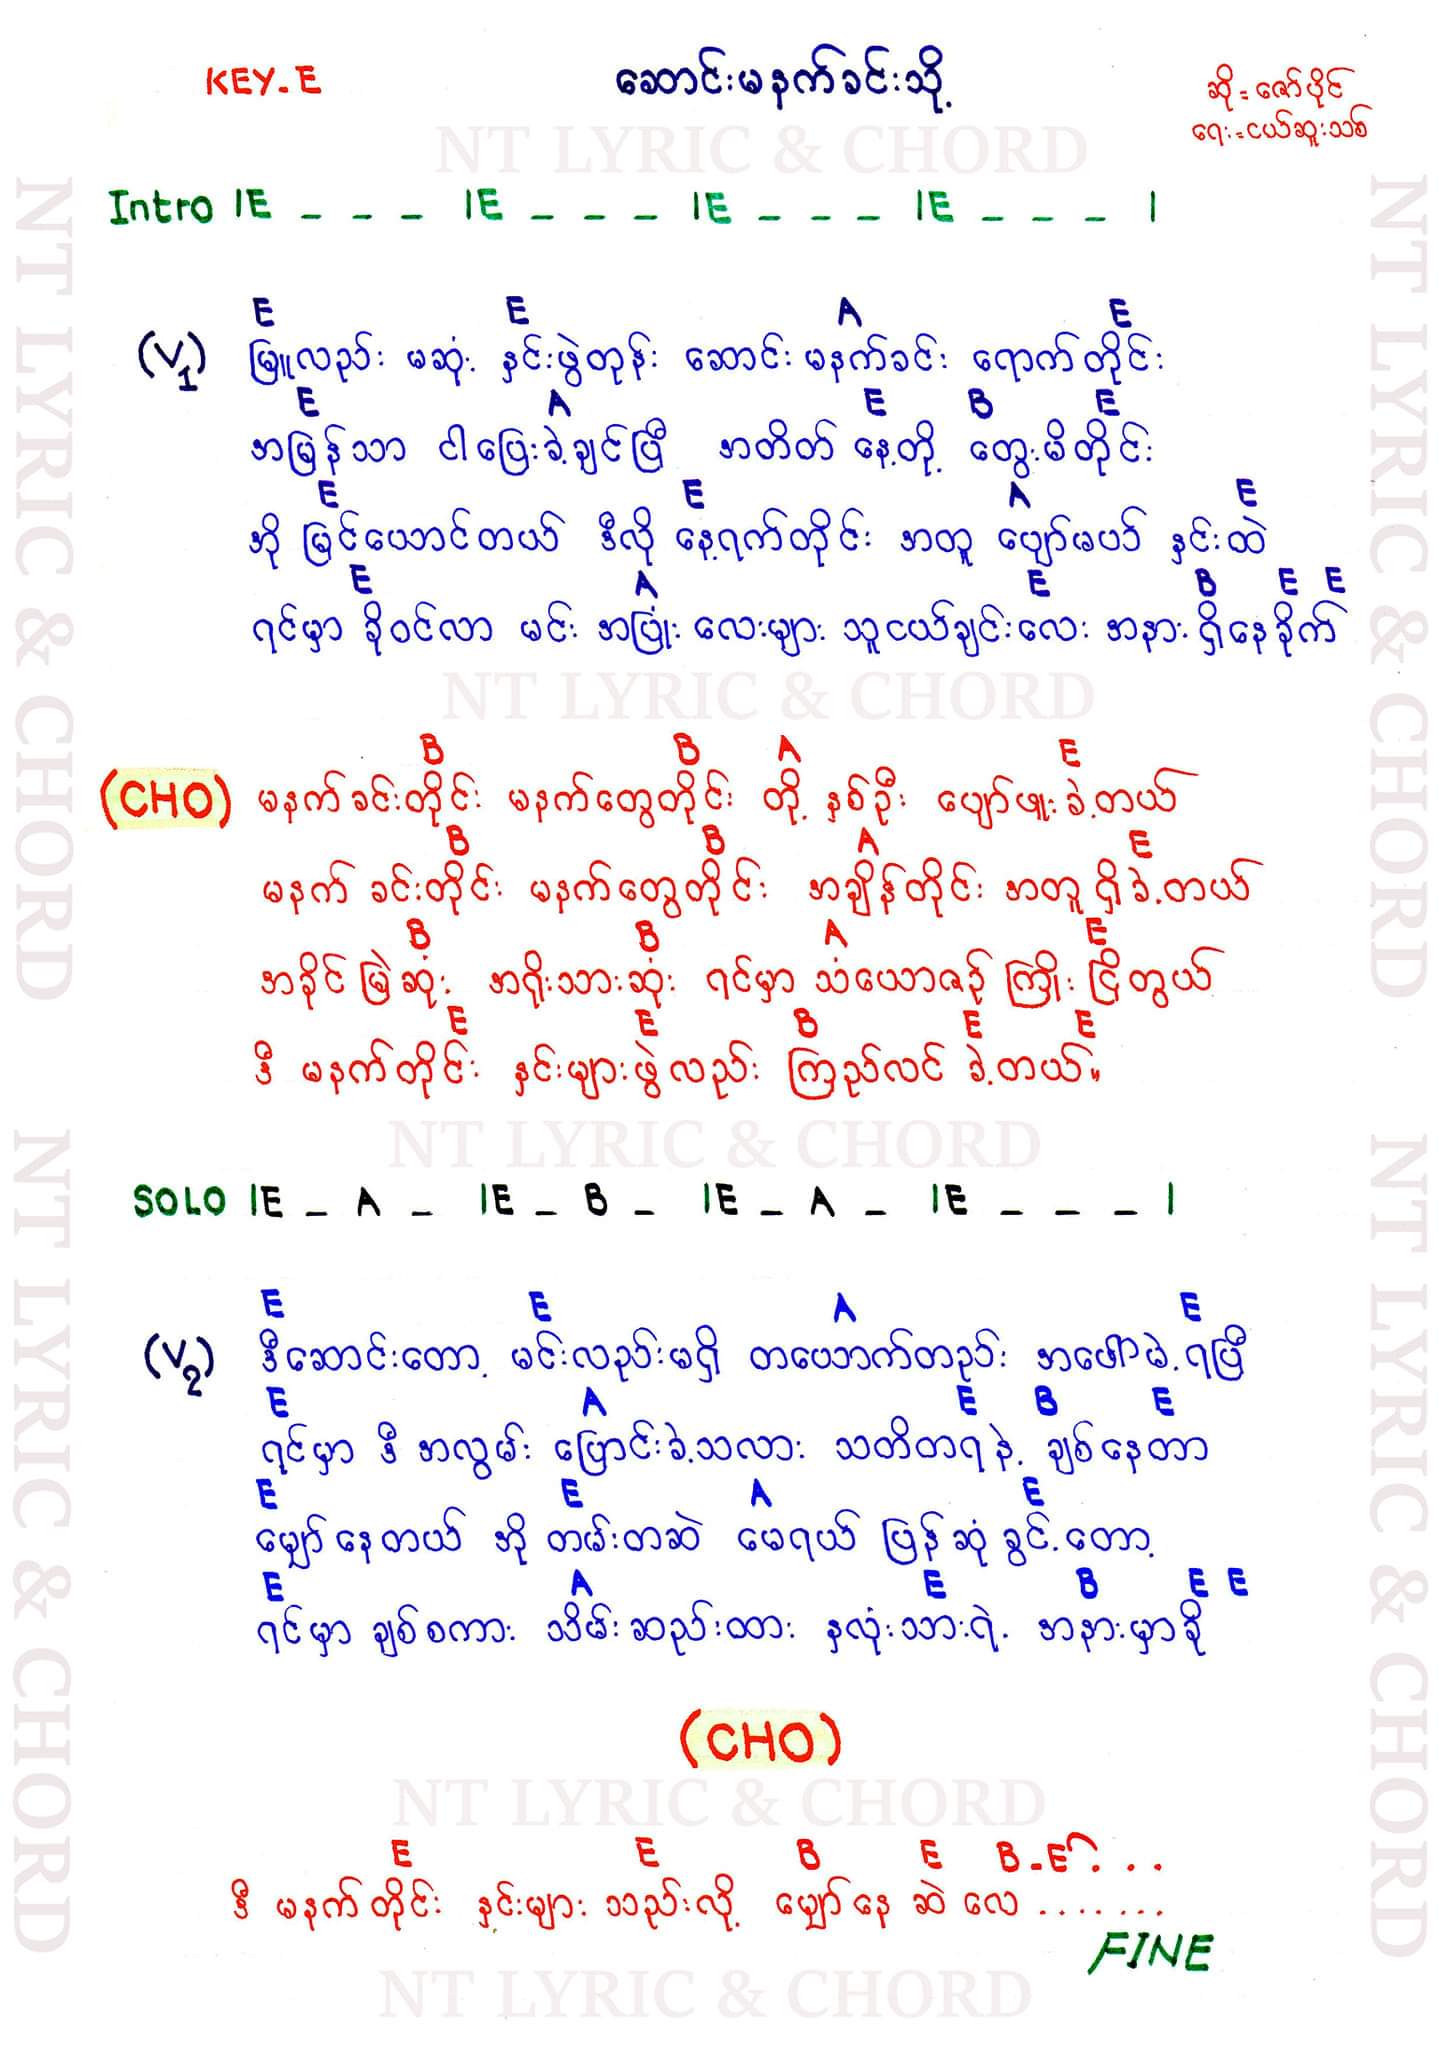 KEY-E
ဆောင်းမနက်ခင်းသို့
ဆို = ဇော်ပိုင်
ရေး = ငယ်ဆူးသစ်
NT LYRIC & CHORD
Intro |E _ _ _ |E _ _ _ |E _ _ _ |E _ _ _ |
E E A E
(V1) မြူလည်း မဆုံး နှင်းဖွဲတုန်း ဆောင်းမနက်ခင်း ရောက်တိုင်း
E A E B E
အမြန်သာ ငါပြေးခဲ့ချင်ပြီ အတိတ် နေ့တို့ တွေးမိတိုင်း
E E A E
အို မြင်ယောင်တယ် ဒီလို နေ့ရက်တိုင်း အတူ ပျော်မယ် နှင်းထဲ
E A E B E E
ရင်မှာ ခိုဝင်လာ မင်း အပြုံး လေးများ သူငယ်ချင်းလေး အနား ရှိနေခိုက်
NT LYRIC & CHORD
B B A E
(CHO) မနက်ခင်းတိုင်း မနက်တွေတိုင်း တို့ နှစ်ဦး ပျော်ဖူးခဲ့တယ်
B B A E
မနက် ခင်းတိုင်း မနက်တွေတိုင်း အချိန်တိုင်း အတူရှိခဲ့တယ်
B B A E
အခိုင်မြဲဆုံး အရိုးသားဆုံး ရင်မှာ သံယောဇဉ် ကြိုး ငြိတွယ်
E E B E E
ဒီ မနက်တိုင်း နှင်းများဖွဲလည်း ကြည်လင် ခဲ့တယ်။
NT LYRIC & CHORD
SOLO |E _ A _ |E _ B _ |E _ A _ |E _ _ _ |
E E A E
(V2) ဒီဆောင်းတော့ မင်းလည်းမရှိ တယောက်တည်း အဖော်မဲ့ရပြီ
E A E B E
ရင်မှာ ဒီ အလွမ်း ပြောင်းခဲ့သလား သတိတရနဲ့ ချစ်နေတာ
E E A E
မျှော်နေတယ် အို တမ်းတဆဲ မေရယ် ပြန်ဆုံခွင့်တော့
E A E B E E
ရင်မှာ ချစ်စကား သိမ်းဆည်းထား နှလုံးသားရဲ့ အနားမှာခို
(CHO)
NT LYRIC & CHORD
E E B E B-E...
ဒီ မနက်တိုင်း နှင်းများ သည်းလို့ မျှော်နေ ဆဲ လေ .......
FINE
NT LYRIC & CHORD
NT LYRIC & CHORD
NT LYRIC & CHORD
NT LYRIC & CHORD
NT LYRIC & CHORD